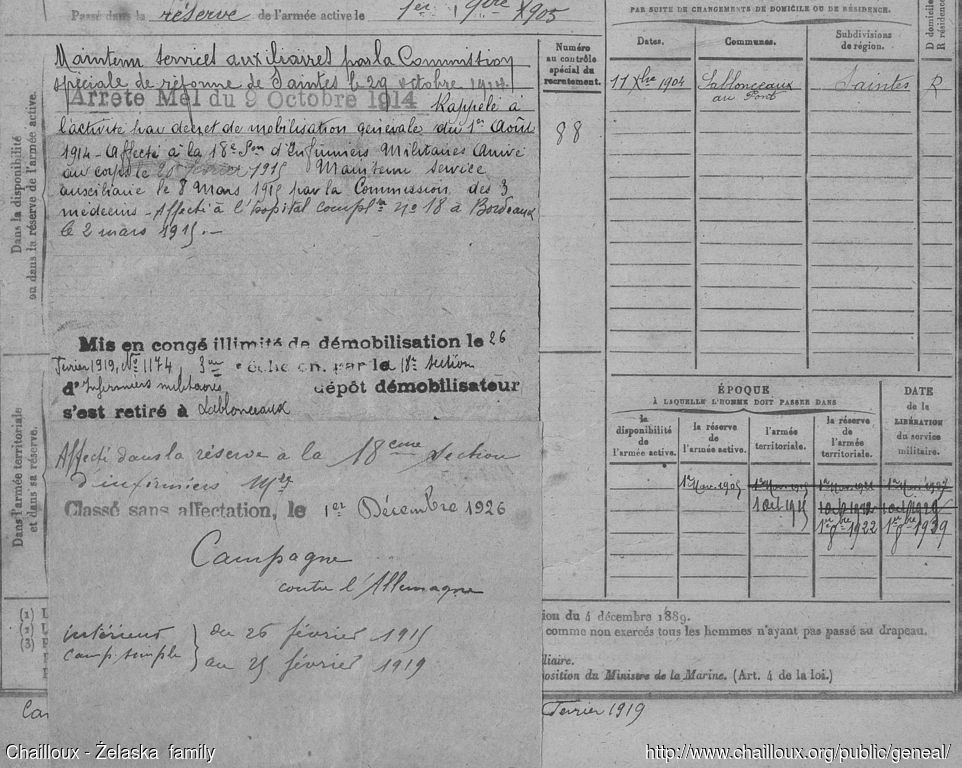 Passé dans la réserve de l'armée active le 1er 9bre 1905
Maintenu services auxiliaires par la Commission
spéciale de réforme de Saintes le 29 octobre 1914.
Arrêté Mel du 9 Octobre 1914 Rappelé à
l'activité par décret de mobilisation générale du 1er Août
1914 - Affecté à la 18e Son d'Infirmiers Militaires Arrivé
au corps le février 1915 Maintenu service
auxiliaire le 8 Mars 1915 par la Commission des 3
médecins - Affecté à l'hopital compl. No 18 à Bordeaux
le 2 mars 1915. -
Mis en congé illimité de démobilisation le 26
Février 1919, No 1174 3me échelon, par le 18e section
d'Infirmiers militaires dépôt démobilisateur
s'est retiré à Sablonceaux
Affecté dans la réserve à la 18eme Section
d'infirmiers Mres
Classé sans affectation, le 1er Décembre 1926
Campagne
contre l'Allemagne
intérieur
camp. simple
du 26 février 1915
au 25 février 1919
Dans la disponibilité
ou dans la réserve de l'armée active.
Dans l'armée territoriale
et dans sa réserve.
(1) L
(3)
Numéro
au contrôle
spécial du
recrutement.
88
PAR SUITE DE CHANGEMENTS DE DOMICILE OU DE RÉSIDENCE.
Dates.
Communes.
Subdivisions
de région.
D domicile
R résidence
11 Xbre 1904
Sablonceaux
au Pont
Saintes
R
ÉPOQUE
À LAQUELLE L'HOMME DOIT PASSER DANS
DATE
de la
LIBÉRATION
du service
militaire.
la
disponibilité
de
l'armée active.
la réserve
de
l'armée active.
l'armée
territoriale.
la réserve
de
l'armée
territoriale.
1er Nov. 1905
1 oct 1915
1er 8bre 1922
1er 8bre 1929
ion du 4 décembre 1889.
comme non exercés tous les hommes n'ayant pas passé au drapeau.
liaire.
position du Ministre de la Marine. (Art. 4 de la loi.)
Ca
Fevrier 1919
Chailloux - Želaska family
http://www.chailloux.org/public/geneal/